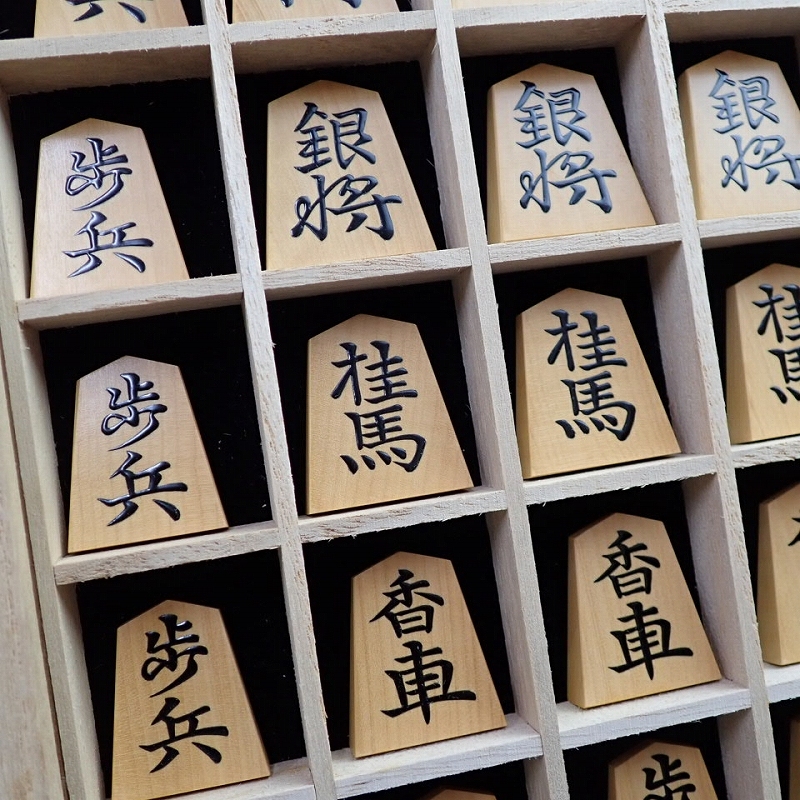 歩兵
銀将
銀将
銀将
歩兵
桂馬
桂馬
桂馬
歩兵
香車
香車
歩